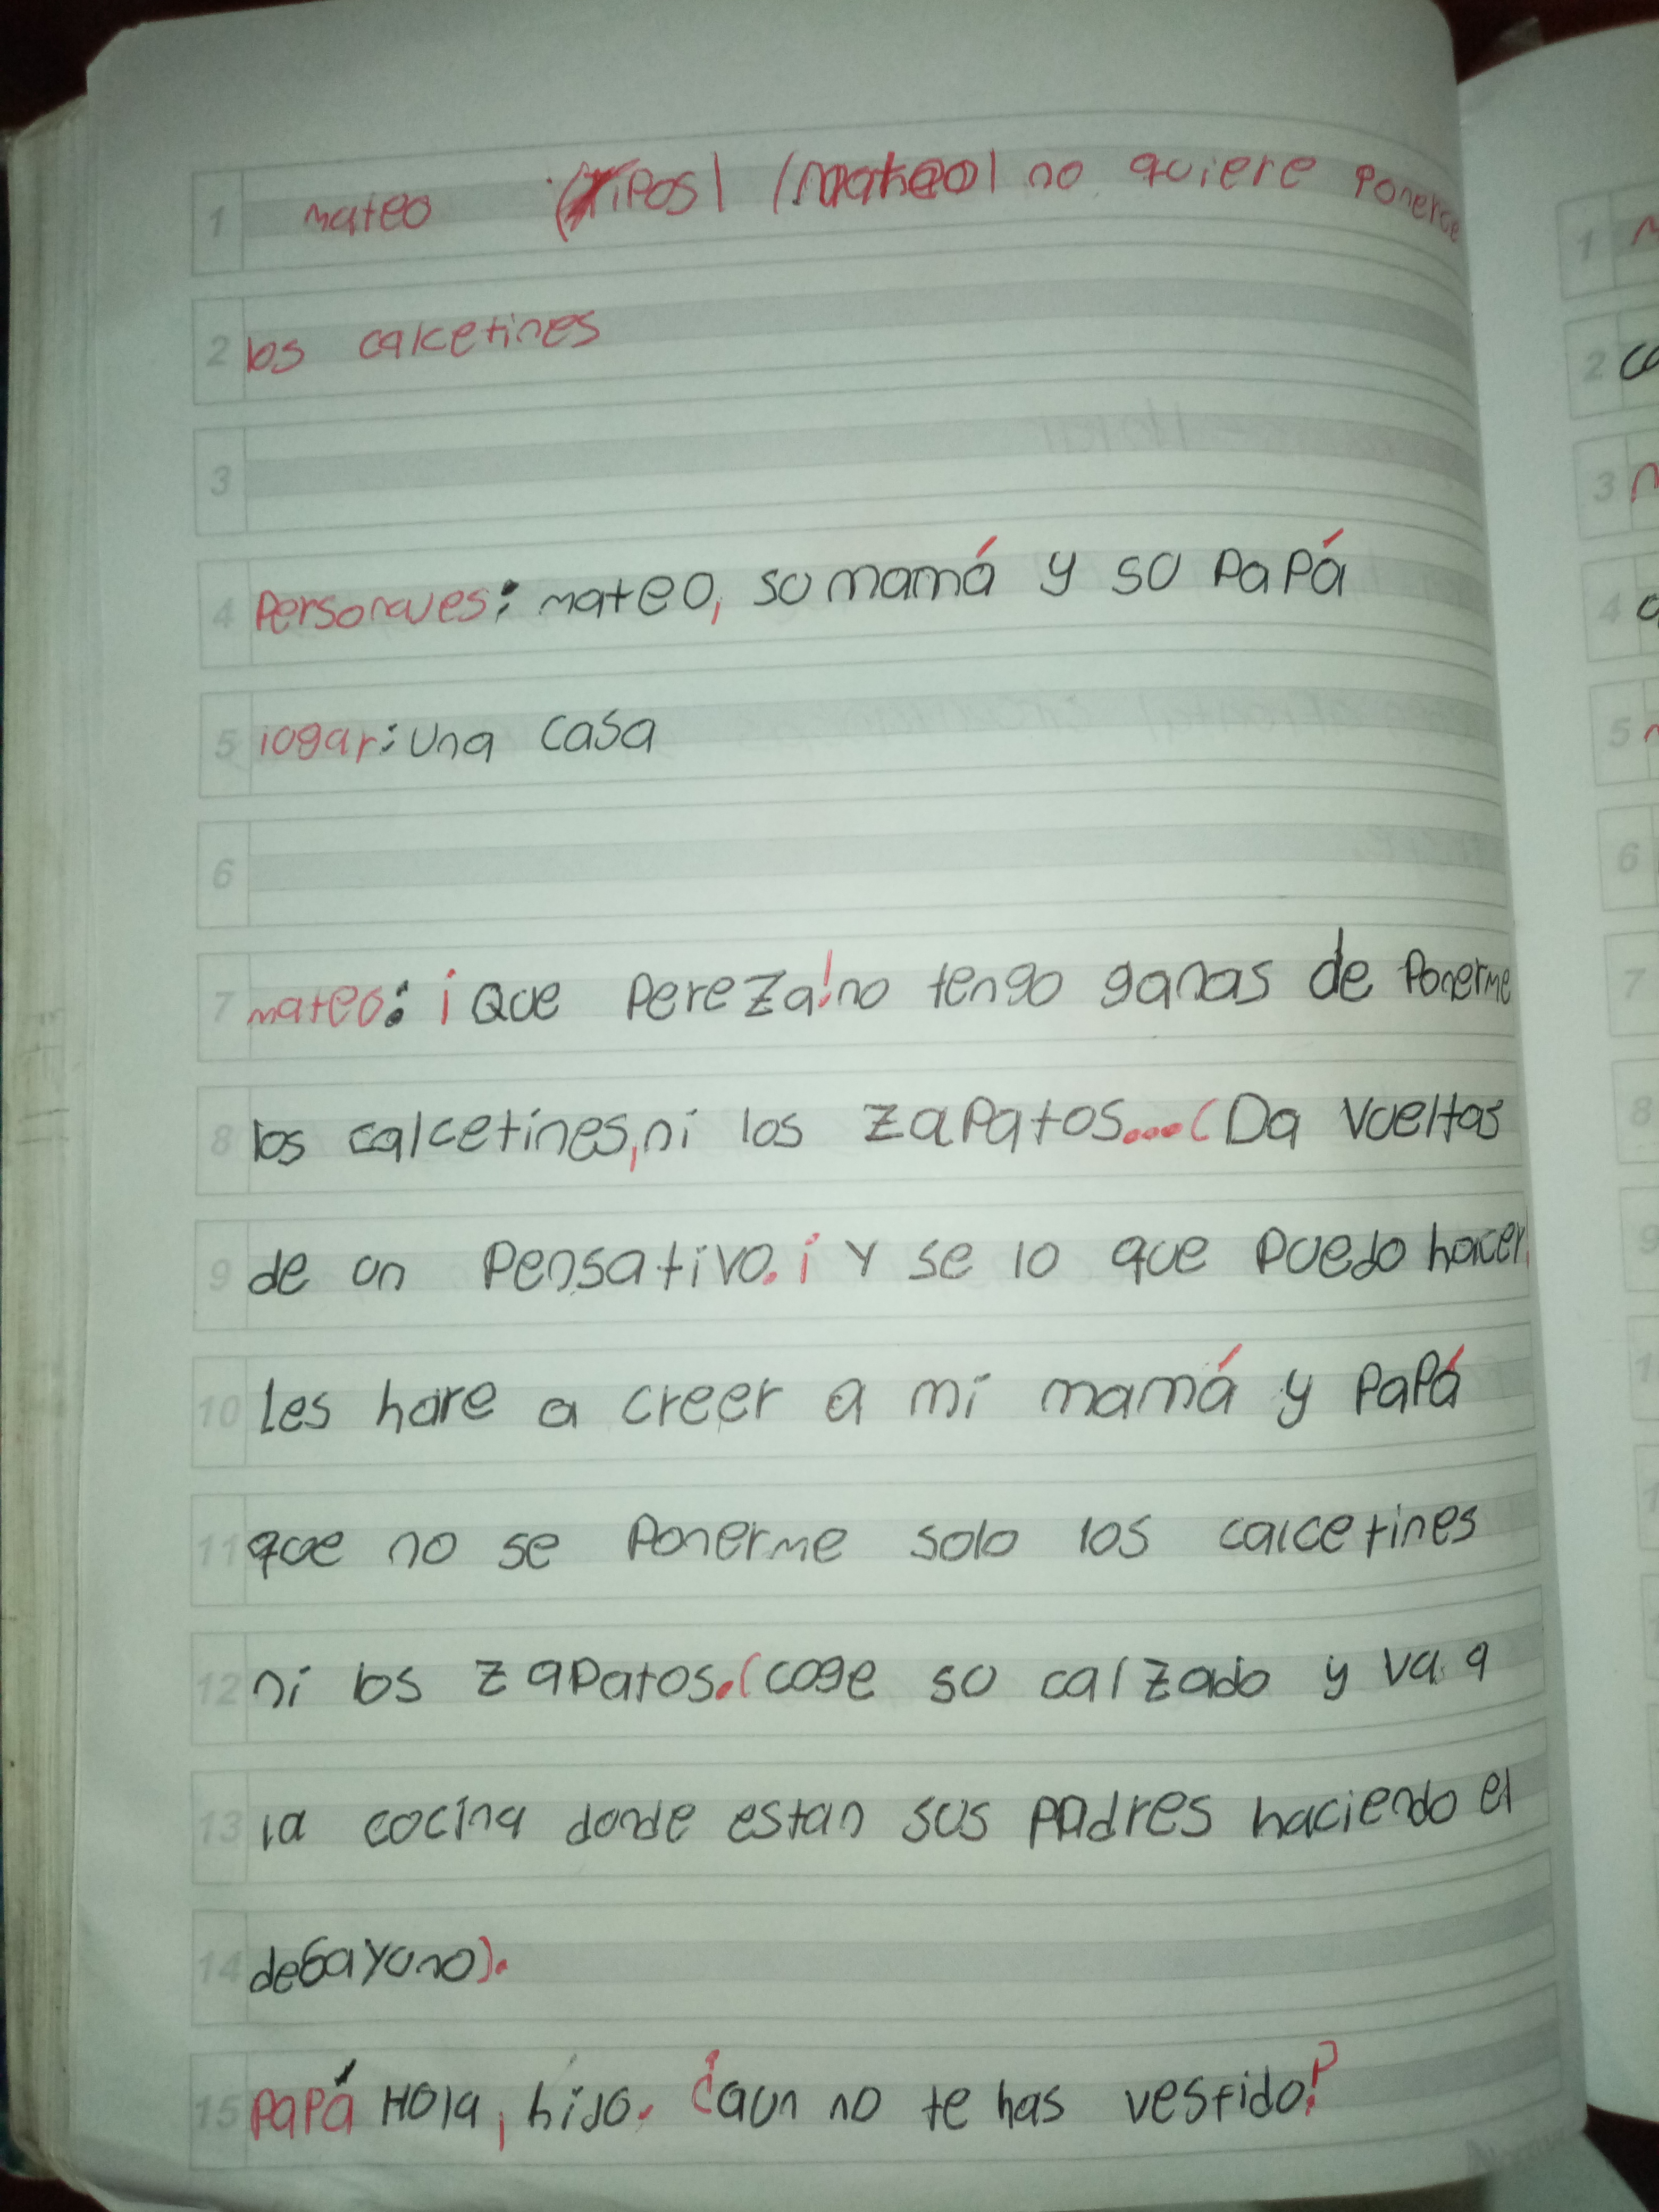 mateo (tipos) (mateo) no quiere ponerce
los calcetines
Personajes: mateo, su mamá y su papá
logar: una casa
mateo: ¡Que pereza! no tengo ganas de ponerme
los calcetines, ni los zapatos... (Da vueltas
de un pensativo. ¡Y se lo que puedo hacer
Les hare a creer a mi mamá y papá
que no se ponerme solo los calcetines
ni los zapatos. (coge su calzado y va a
la cocina donde estan sus padres haciendo el
debayuno).
papá Hola, hijo. ¿aun no te has vestido?
1
2
3
4
5
6
7
8
9
10
11
12
13
14
15